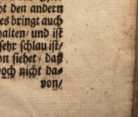 ht den andern
es bringt auch
halten/ und ist
sehr schlau ist/
n siehet/ daß
noch nicht da-
von/